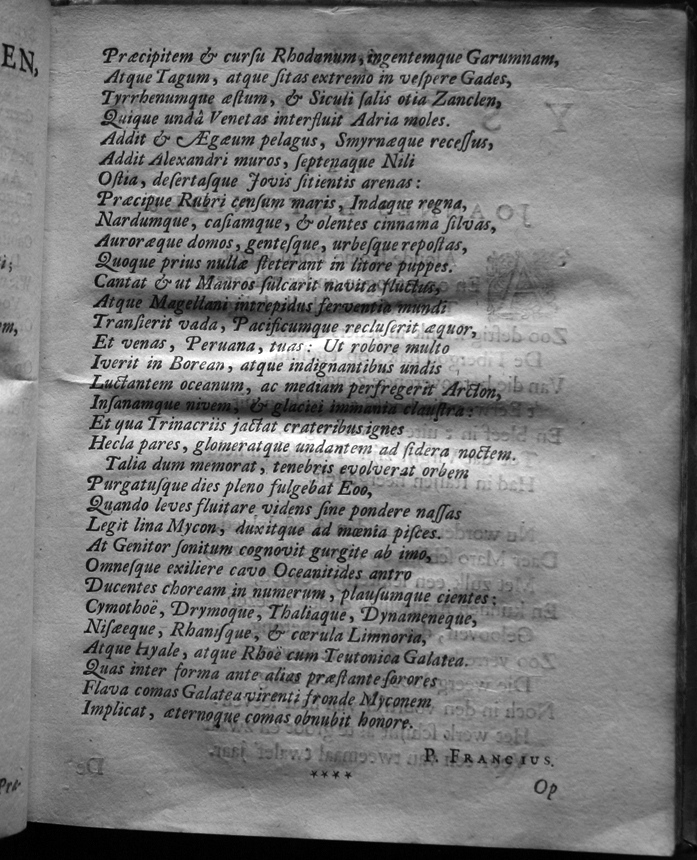 EN,
Præcipitem & curſu Rhodanum, ingentemque Garumnam,
Atque Tagum, atque ſitas extremo in veſpere Gades,
Tyrrhenumque æſtum, & Siculi ſalis otia Zanclen,
Quique undâ Venetas interfluit Adria moles.
Addit & Ægæum pelagus, Smyrnæque receſſus,
Addit Alexandri muros, ſeptenaque Nili
Oſtia, deſertaſque Jovis ſitientis arenas:
Præcipue Rubri cenſum maris, Indaque regna,
Nardumque, caſiamque, & olentes cinnama ſilvas,
Auroræque domos, genteſque, urbeſque repoſtas,
Quoque prius nullæ ſteterant in litore puppes.
Cantat & ut Mauros ſulcarit navita fluctus,
Atque Magellani intrepidus ferventia mundi
Tranſierit vada, Pacificumque recluſerit æquor,
Et venas, Peruana, tuas: Ut robore multo
Iverit in Borean, atque indignantibus undis
Luctantem oceanum, ac mediam perfregerit Arcton,
Inſanamque nivem, & glaciei immania clauſtra:
Et qua Trinacriis jactat crateribus ignes
Hecla pares, glomeratque undantem ad ſidera noctem.
Talia dum memorat, tenebris evolverat orbem
Purgatuſque dies pleno fulgebat Eoo,
Quando leves fluitare videns ſine pondere naſſas
Legit lina Mycon, duxitque ad mœnia piſces.
At Genitor ſonitum cognovit gurgite ab imo,
Omneſque exiliere cavo Oceanitides antro
Ducentes choream in numerum, plauſumque cientes;
Cymothoë, Drymoque, Thaliaque, Dynameneque,
Niſæeque, Rhaniſque, & cœrula Limnoria,
Atque Hyale, atque Rhoë cum Teutonica Galatea.
Quas inter forma ante alias præſtante ſorores
Flava comas Galatea virenti fronde Myconem
Implicat, æternoque comas obnubit honore.
P. FRANCIUS.
****
Op